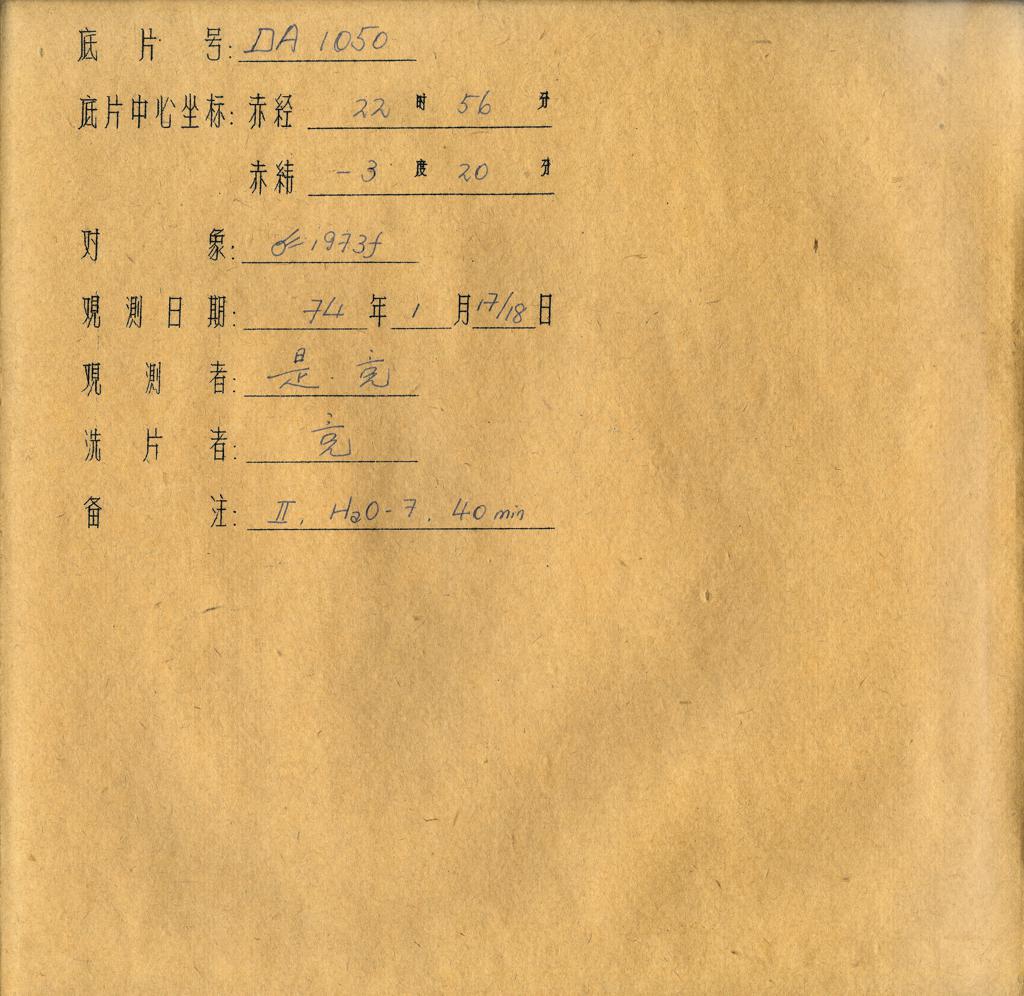 底片号: DA 1050
底片中心坐标: 赤经 22 时 56 分
赤纬 -3 度 20 分
对象: ☄ 1973f
观测日期: 74 年 1 月 17/18 日
观测者: 是. 竞
洗片者: 竞
备注: II. H2O-7. 40 min